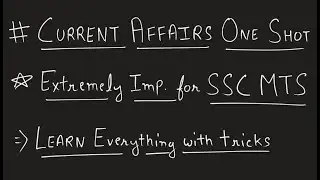 # CURRENT AFFAIRS ONE SHOT
☆ Extremely Imp. for SSC MTS
⇒ LEARN Everything with tricks